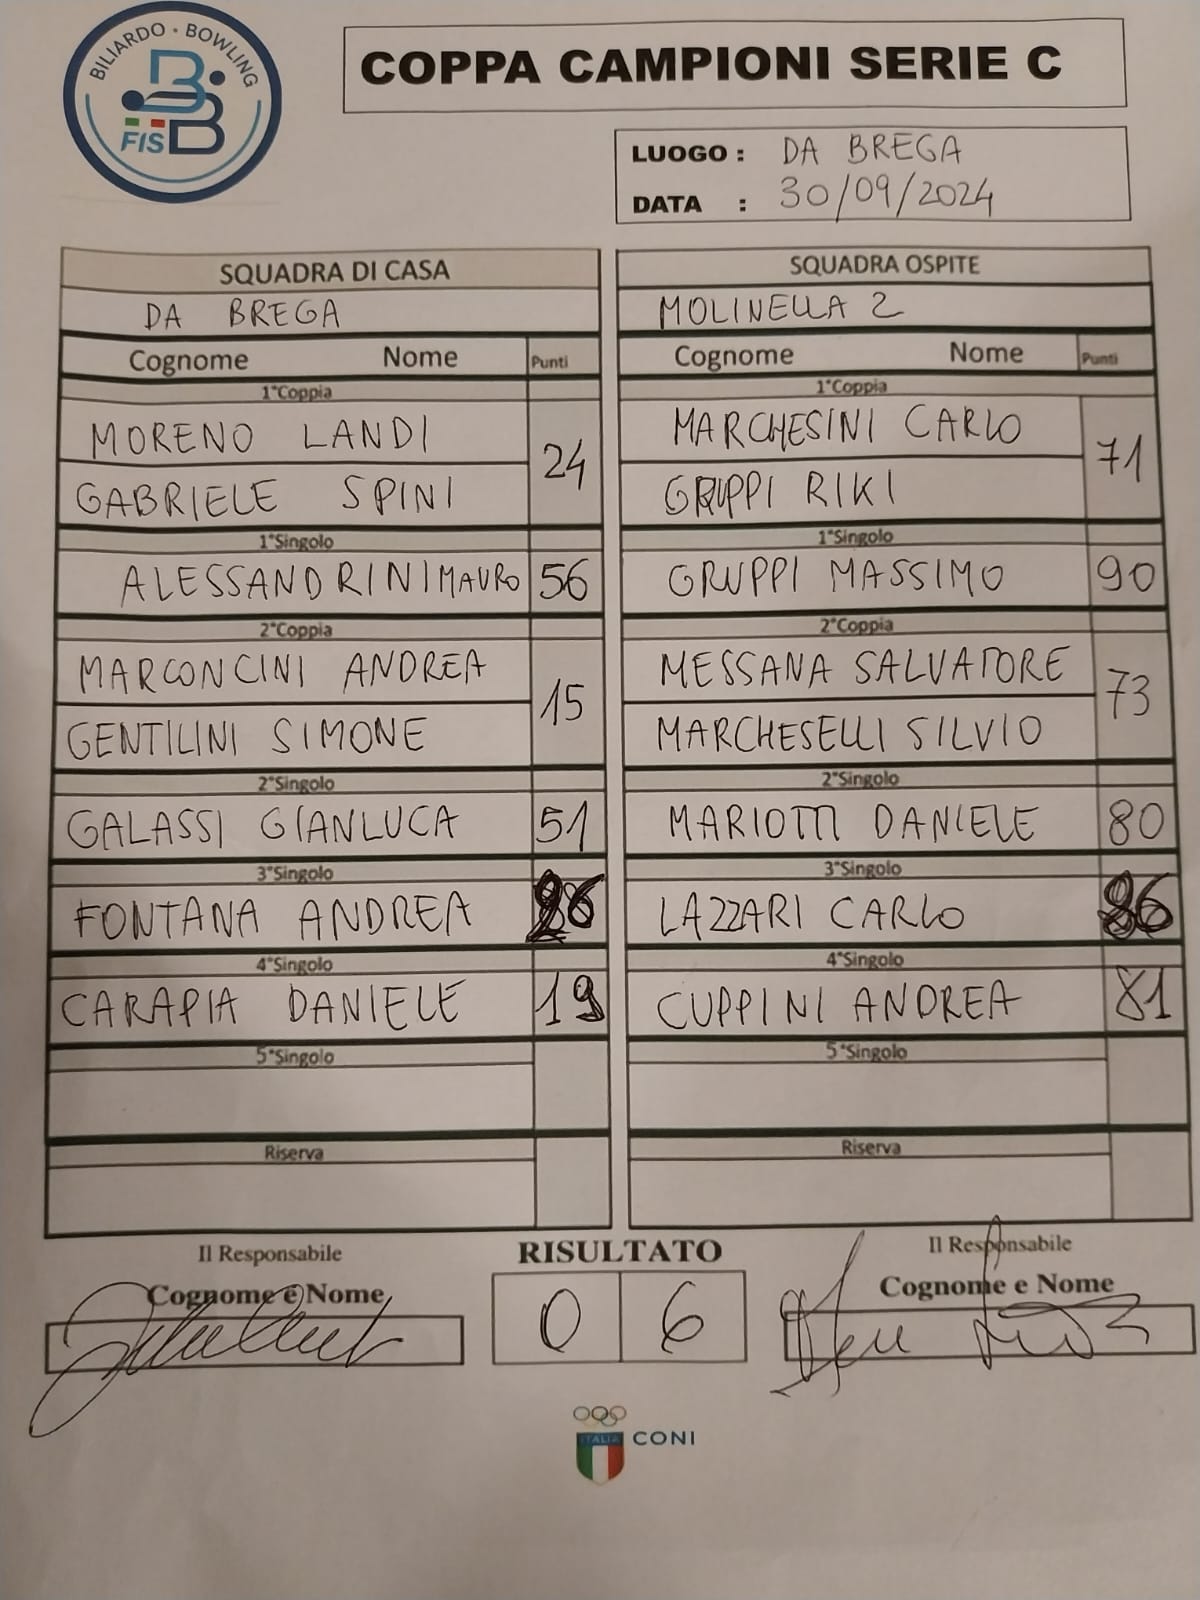 BILIARDO · BOWLING
FISBB
COPPA CAMPIONI SERIE C
LUOGO : DA BREGA
DATA : 30/09/2024
SQUADRA DI CASA
DA BREGA
Cognome Nome Punti
1°Coppia
MORENO LANDI
24
GABRIELE SPINI
1°Singolo
ALESSANDRINI MAURO 56
2°Coppia
MARCONCINI ANDREA
15
GENTILINI SIMONE
2°Singolo
GALASSI GIANLUCA 51
3°Singolo
FONTANA ANDREA
4°Singolo
CARAPIA DANIELE 19
5°Singolo
Riserva
SQUADRA OSPITE
MOLINELLA 2
Cognome Nome Punti
1°Coppia
MARCHESINI CARLO
71
GRUPPI RIKI
1°Singolo
GRUPPI MASSIMO 90
2°Coppia
MESSANA SALVATORE
73
MARCHESELLI SILVIO
2°Singolo
MARIOTTI DANIELE 80
3°Singolo
LAZZARI CARLO
4°Singolo
CUPPINI ANDREA 81
5°Singolo
Riserva
Il Responsabile
Cognome e Nome
RISULTATO
0 6
Il Responsabile
Cognome e Nome
ITALIA
CONI